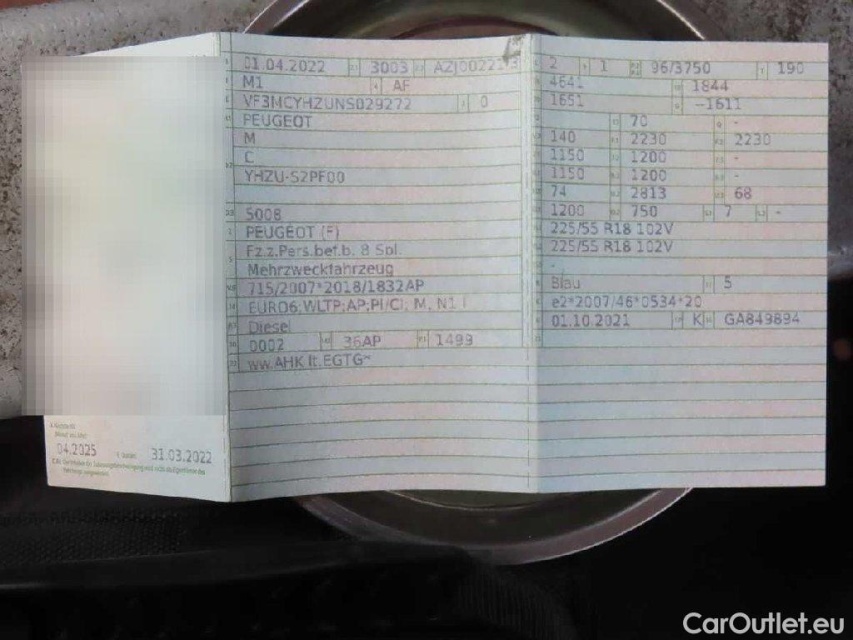 01.04.2022 3003
M1 AF
VF3MCYHZUNS029272 0
PEUGEOT
M
C
YHZU-S2PF00
5008
PEUGEOT (F)
Fz.z.Pers.bef.b. 8 Spl.
Mehrzweckfahrzeug
715/2007*2018/1832AP
EURO6;WLTP;AP;PI/CI; M, N1 I
Diesel
0002 36AP 1499
ww.AHK lt.EGTG*
04.2025 31.03.2022
2 1 96/3750 190
4641 1844
1651 -1611
70 -
140 2230 2230
1150 1200 -
1150 1200 -
74 2813 68
1200 750 7 -
225/55 R18 102V
225/55 R18 102V
-
Blau 5
e2*2007/46*0534*20
01.10.2021 K GA849894
CarOutlet.eu